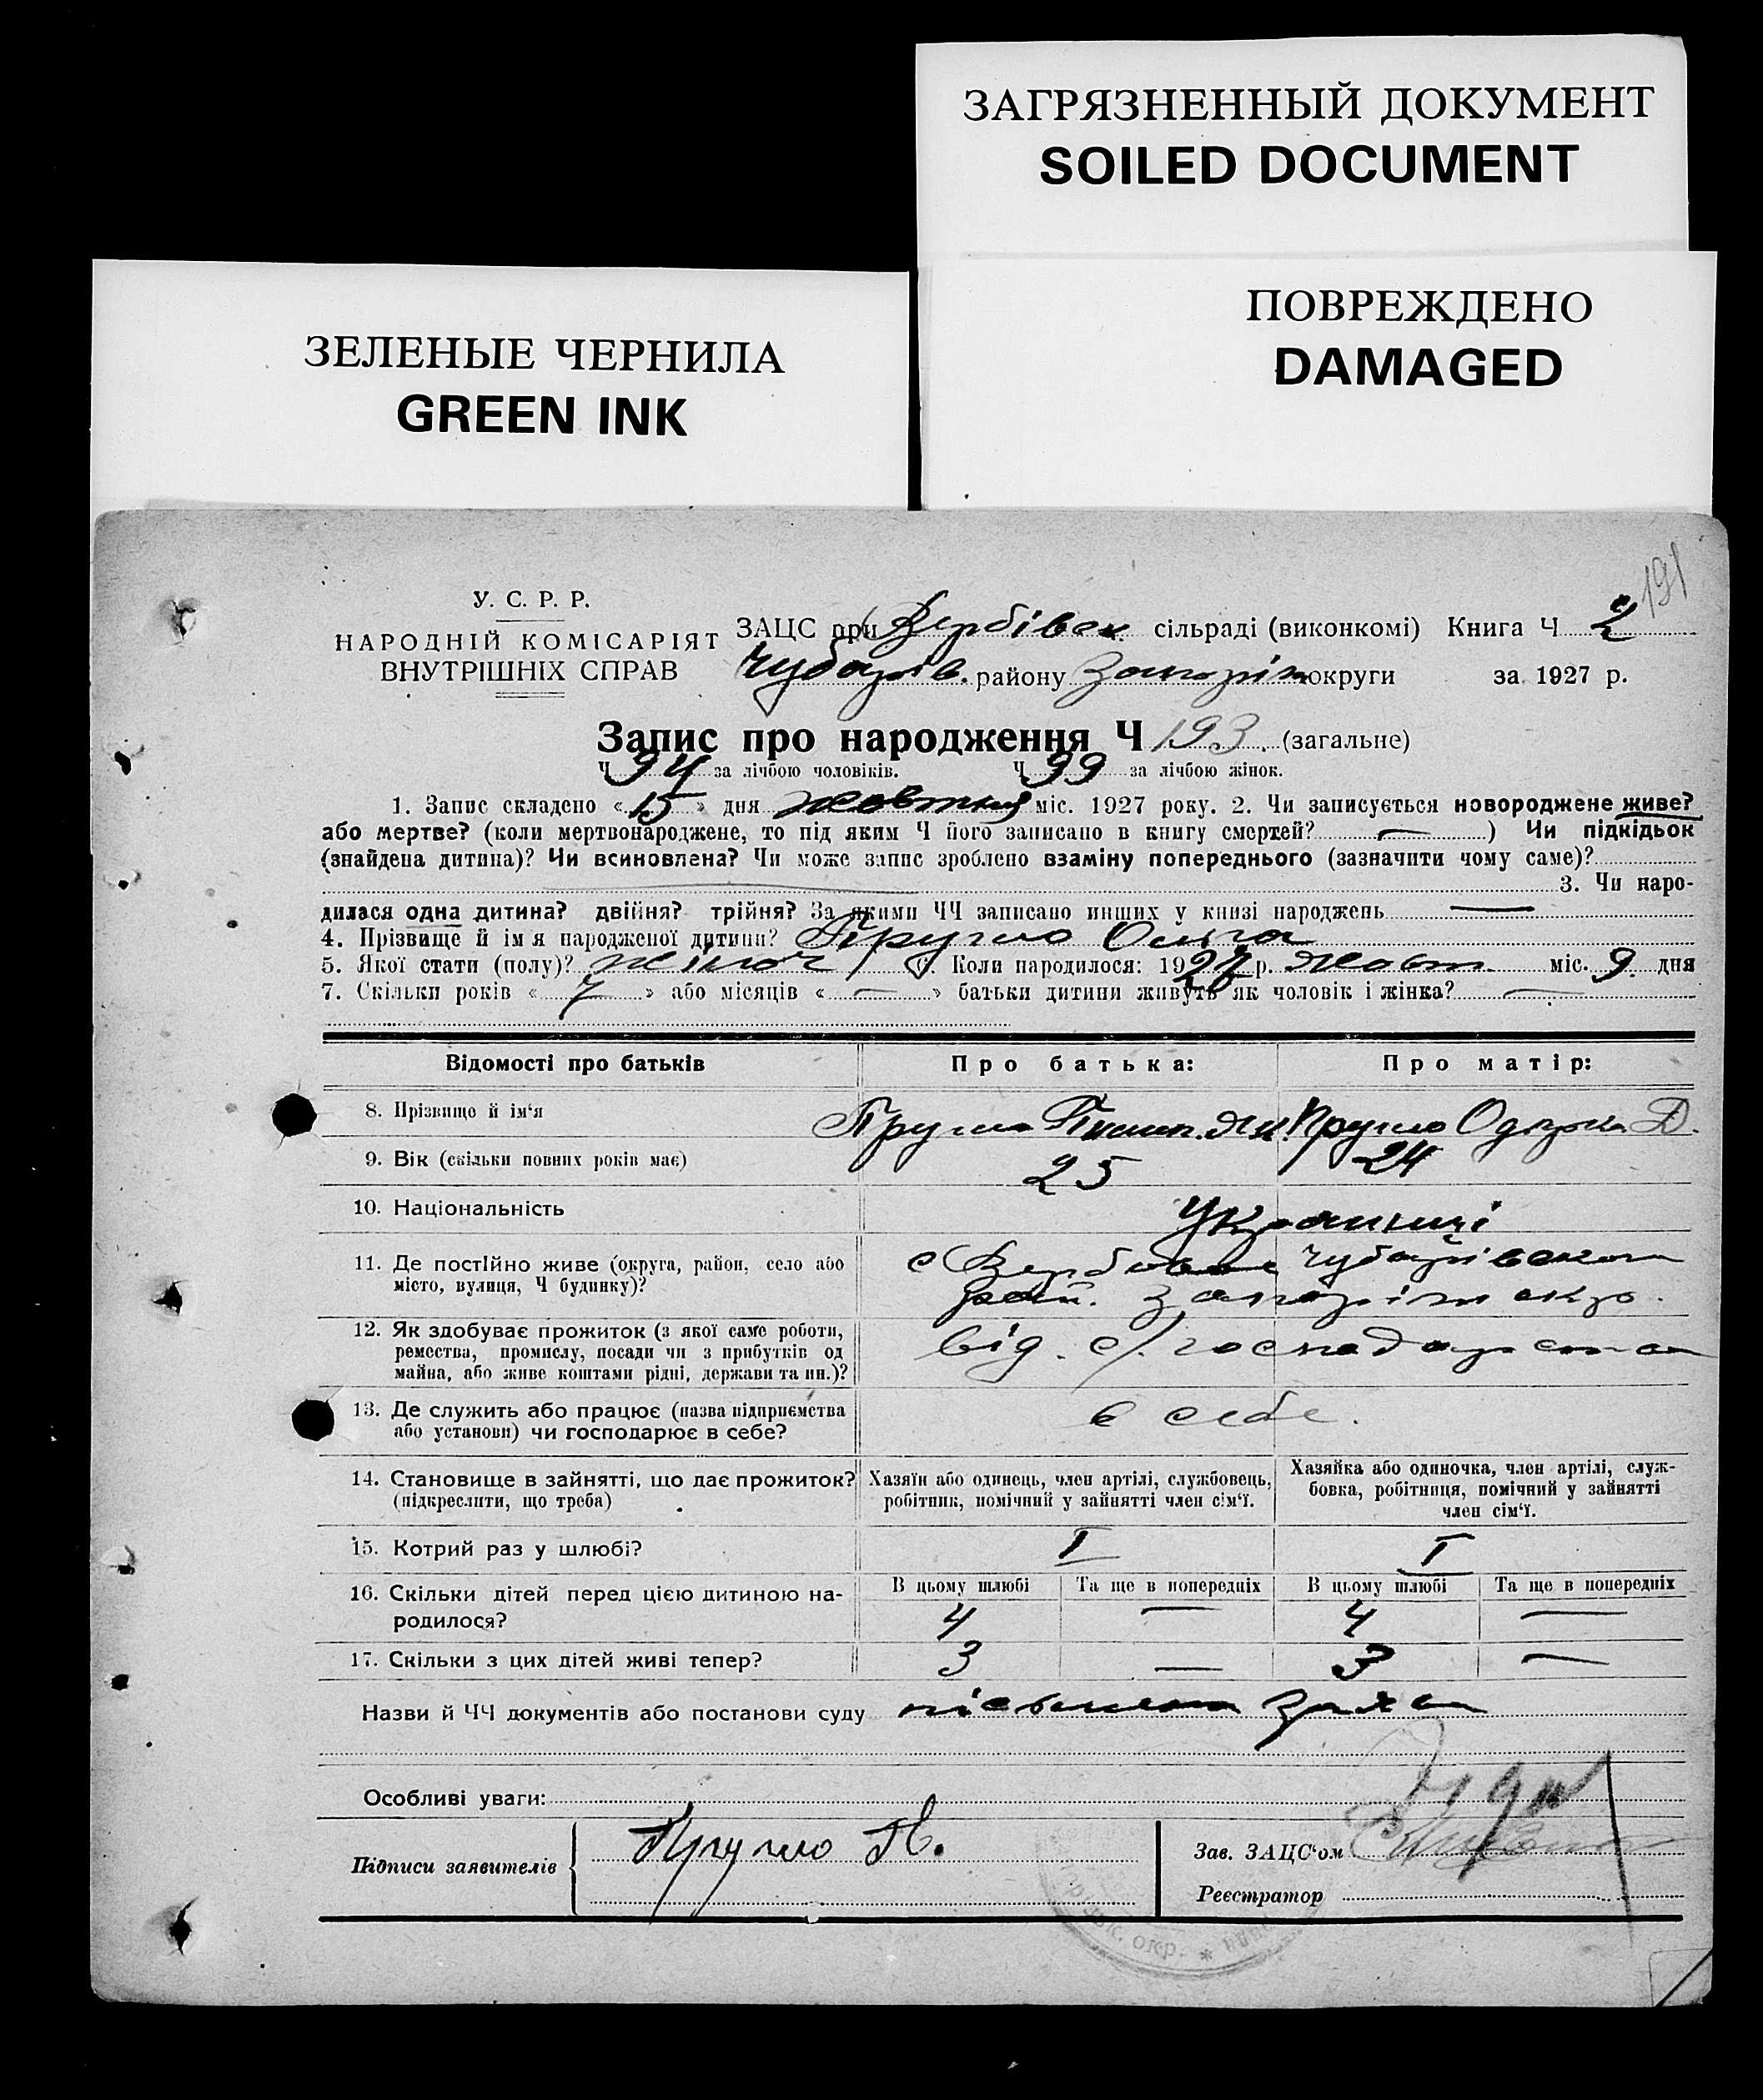 ЗАГРЯЗНЕННЫЙ ДОКУМЕНТ
SOILED DOCUMENT
ПОВРЕЖДЕНО
DAMAGED
ЗЕЛЕНЫЕ ЧЕРНИЛА
GREEN INK
191
У. С. Р. Р.
НАРОДНІЙ КОМІСАРІЯТ
ВНУТРІШНІХ СПРАВ
ЗАЦС при Вербівськ сільраді (виконкомі) Книга Ч 2
Чубарів. району Запоріж округи за 1927 р.
Запис про народження Ч 193. (загальне)
Ч 94 за лічбою чоловіків. Ч 99 за лічбою жінок.
1. Запис складено «15» дня жовтня міс. 1927 року. 2. Чи записується новороджене живе?
або мертве? (коли мертвонароджене, то під яким Ч його записано в книгу смертей? —) Чи підкідьок
(знайдена дитина)? Чи всиновлена? Чи може запис зроблено взаміну попереднього (зазначити чому саме)?
3. Чи наро-
дилася одна дитина? двійня? трійня? За якими ЧЧ записано инших у книзі народжень —
4. Прізвище й ім'я народженої дитини? Ольга
5. Якої стати (полу)? жіноч 6. Коли народилося: 1927 р. жовт. міс. 9. дня
7. Скільки років «7» або місяців «—» батьки дитини живуть як чоловік і жінка? —
Відомості про батьків Про батька: Про матір:
8. Прізвище й ім'я
9. Вік (скільки повних років має) 25 24
10. Національність Українці
11. Де постійно живе (округа, район, село або
місто, вулиця, Ч будинку)?
с Чубарівського
рай. Запоріж окр.
12. Як здобуває прожиток (з якої саме роботи,
ремества, промислу, посади чи з прибутків од
майна, або живе коштами рідні, держави та ин.)?
від. с/господарства
13. Де служить або працює (назва підприємства
або установи) чи господарює в себе?
в себе.
14. Становище в зайнятті, що дає прожиток?
(підкреслити, що треба)
Хазяїн або одинець, член артілі, службовець,
робітник, помічний у зайнятті член сім'ї.
Хазяйка або одиночка, член артілі, служ-
бовка, робітниця, помічний у зайнятті
член сім'ї.
15. Котрий раз у шлюбі? I I
16. Скільки дітей перед цією дитиною на-
родилося?
В цьому шлюбі Та ще в попередніх В цьому шлюбі Та ще в попередніх
4 — 4 —
17. Скільки з цих дітей живі тепер? 3 — 3 —
Назви й ЧЧ документів або постанови суду
Особливі уваги:
Підписи заявителів
Зав. ЗАЦС'ом
Реєстратор
окр.